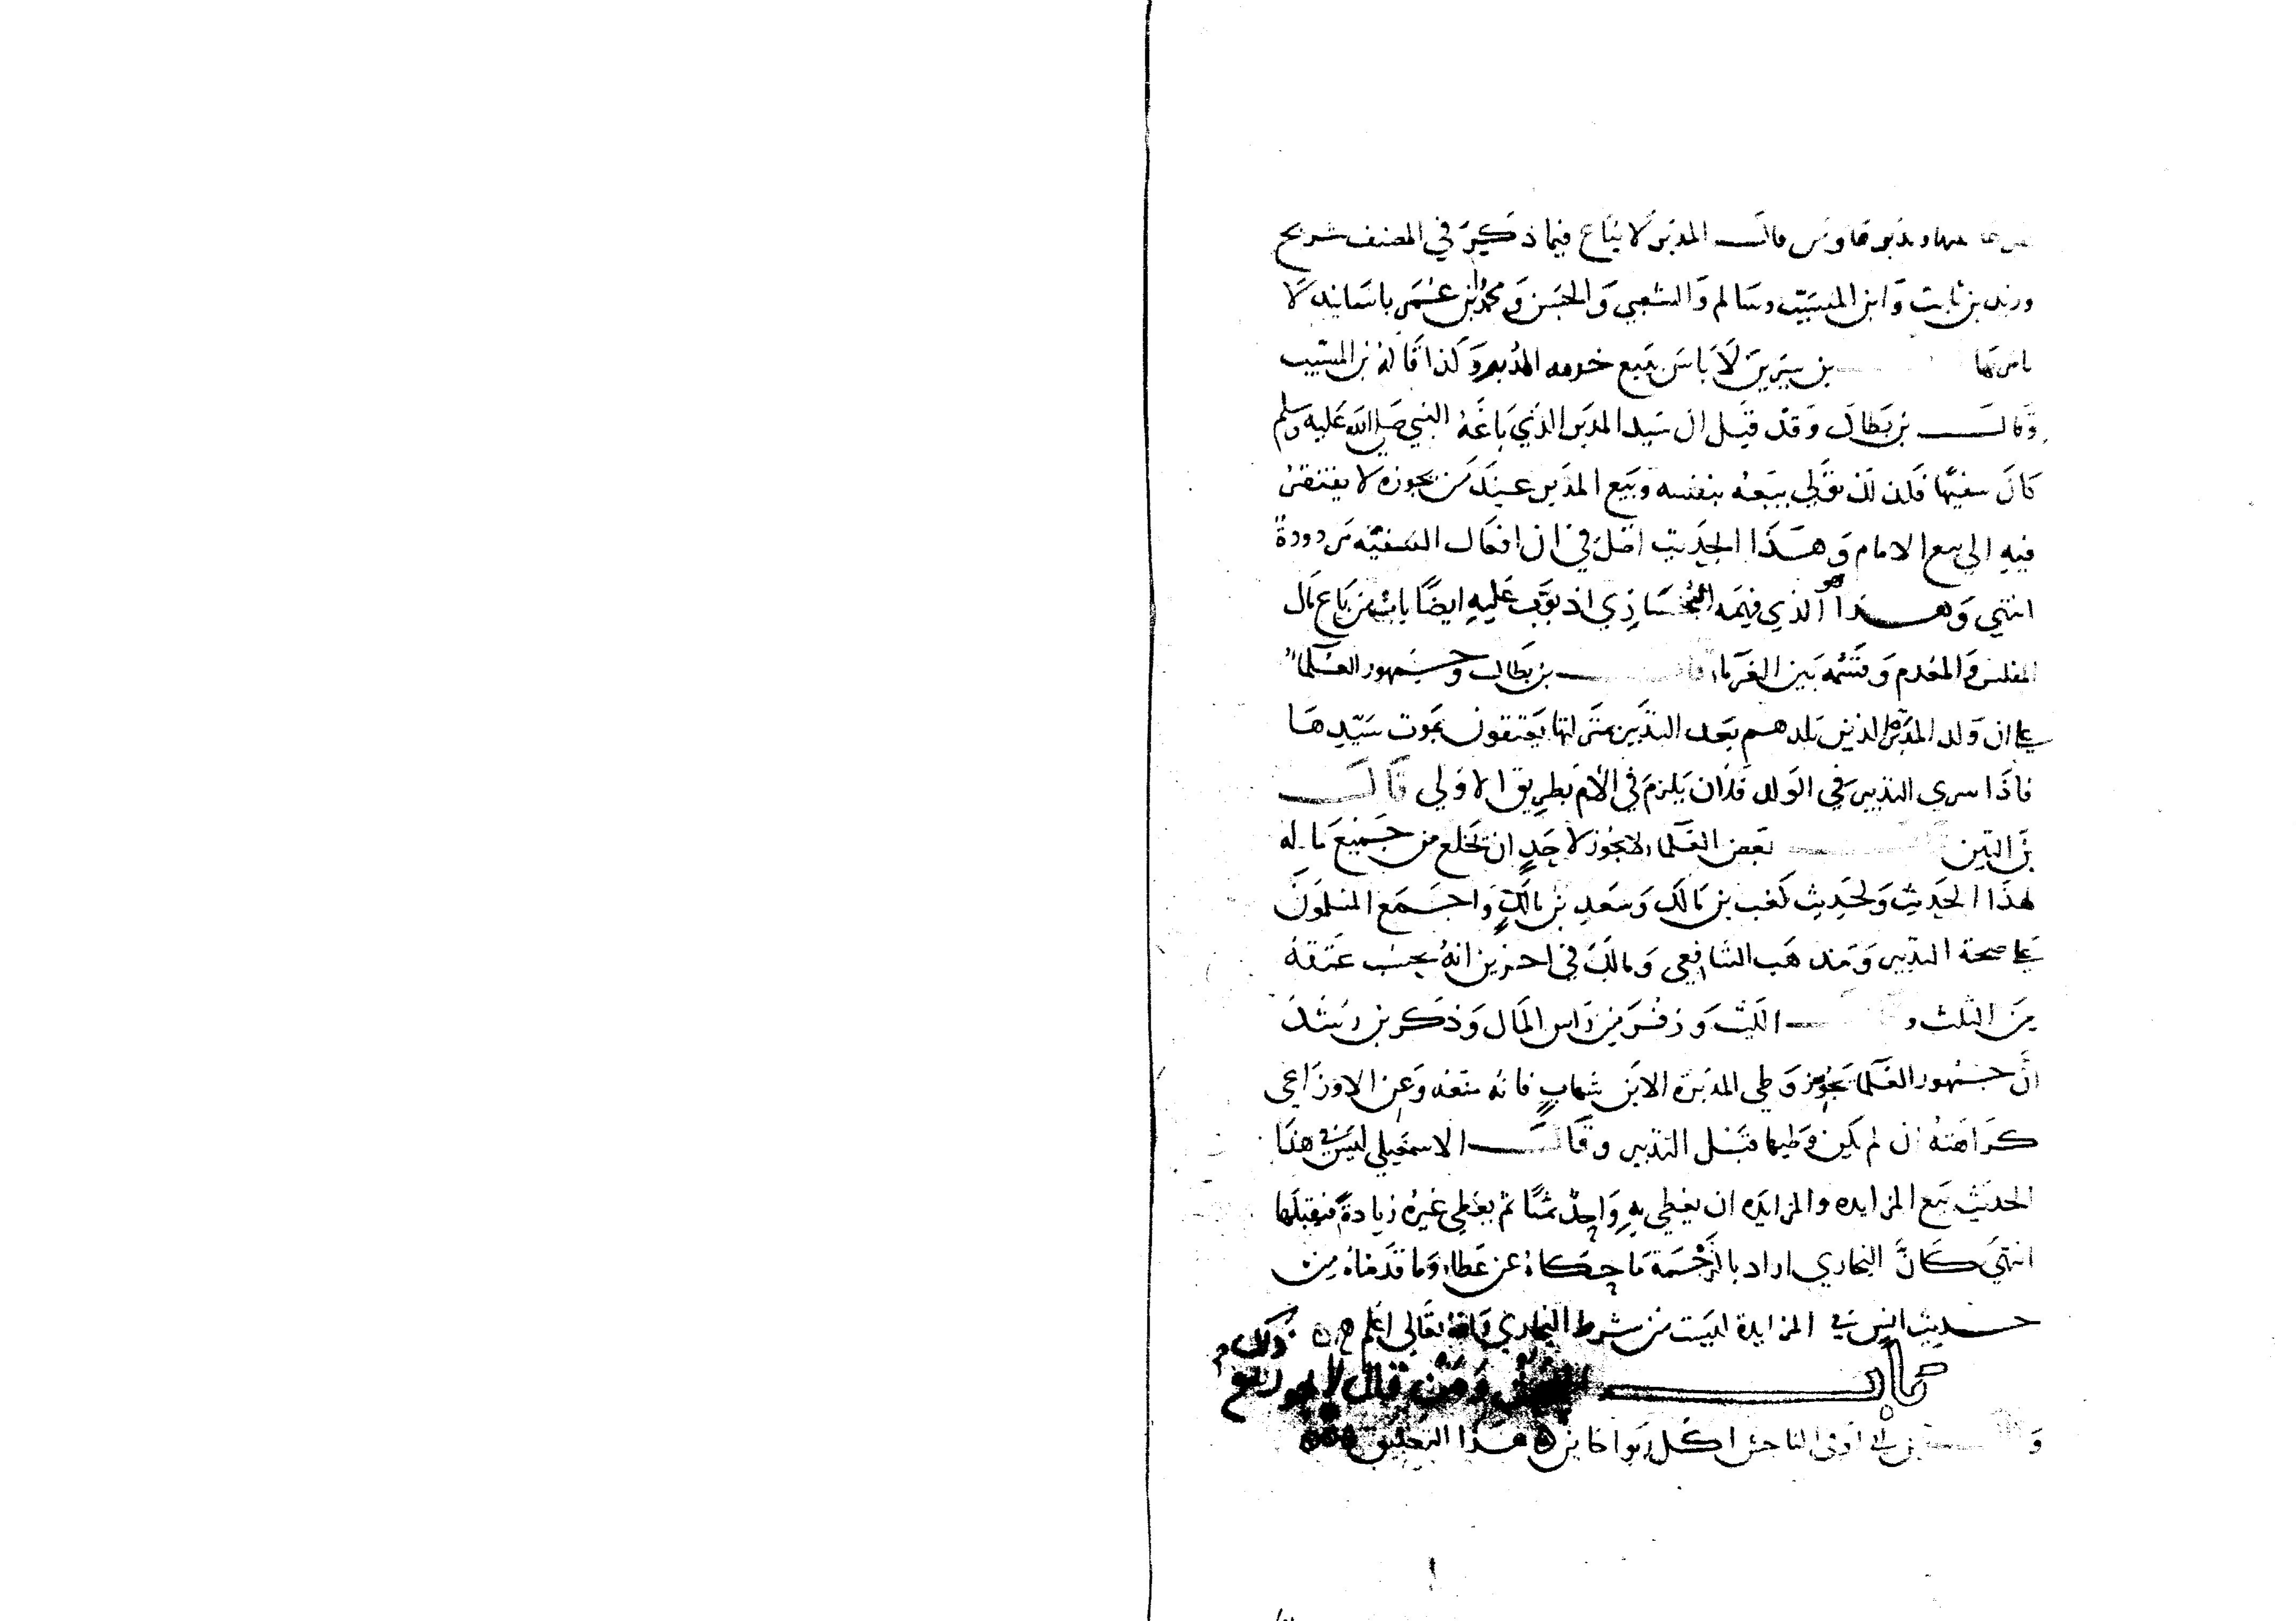 المدبر لا يباع فيما ذكر في المصنف شريح
وزيد بن ثابت وابن المسيب وسالم والشعبي والحسن ومحمد بن عمر باسانيد لا
باس بها بن سيرين لا باس ببيع خدمه المدبر وكذا قاله بن المسيب
وقال بن بطال وقد قيل ان سيد المدبر الذي باعه النبي صلى الله عليه وسلم
كان سفيها فلذلك تولي بيعه بنفسه وبيع المدبر عند من يجوزه لا يفتقر
فيه الي بيع الامام وهذا الحديث اصل في ان افعال السفيه مردودة
انتهي وهذا هو الذي فهمه البخاري اذ بوب عليه ايضا باب من باع مال
المفلس والمعدم وقسمه بين الغرما قال بن بطال وجمهور العلما
علي ان ولد المدبرة الذين تلدهم بعد التدبير بمنزلتها يعتقون بموت سيدها
فاذا سري التدبير في الولد فلان يلزم في الام بطريق الاولي قال
بن التين بعض العلما لا يجوز لاحد ان ينخلع من جميع ماله
لهذا الحديث ولحديث كعب بن مالك وسعد بن مالك واجمع المسلمون
علي صحة التدبير ومذهب الشافعي ومالك في اخرين انه يحسب عتقه
من الثلث و الليث وزفر من راس المال وذكر بن رشد
ان جمهور العلما يجوز وطي المدبرة الا بن شهاب فانه منعه وعن الاوزاعي
كراهته ان لم يكن وطيها قبل التدبير وقال الاسمعيلي ليس في هذا
الحديث بيع المزايده والمزايده ان يعطي به واحد ثمنا ثم يعطي غيره زيادة فيقبلها
انتهي كان البخاري اراد بالترجمة ما حكاه عن عطا وما قدمناه من
حديث انس في المزايدة ليست من شرط البخاري والله تعالى اعلم
باب النجش ومن قال لا يجوز بيع ذلك
و بن ابي اوفى الناجش اكل ربوا خاين هذا التعليق